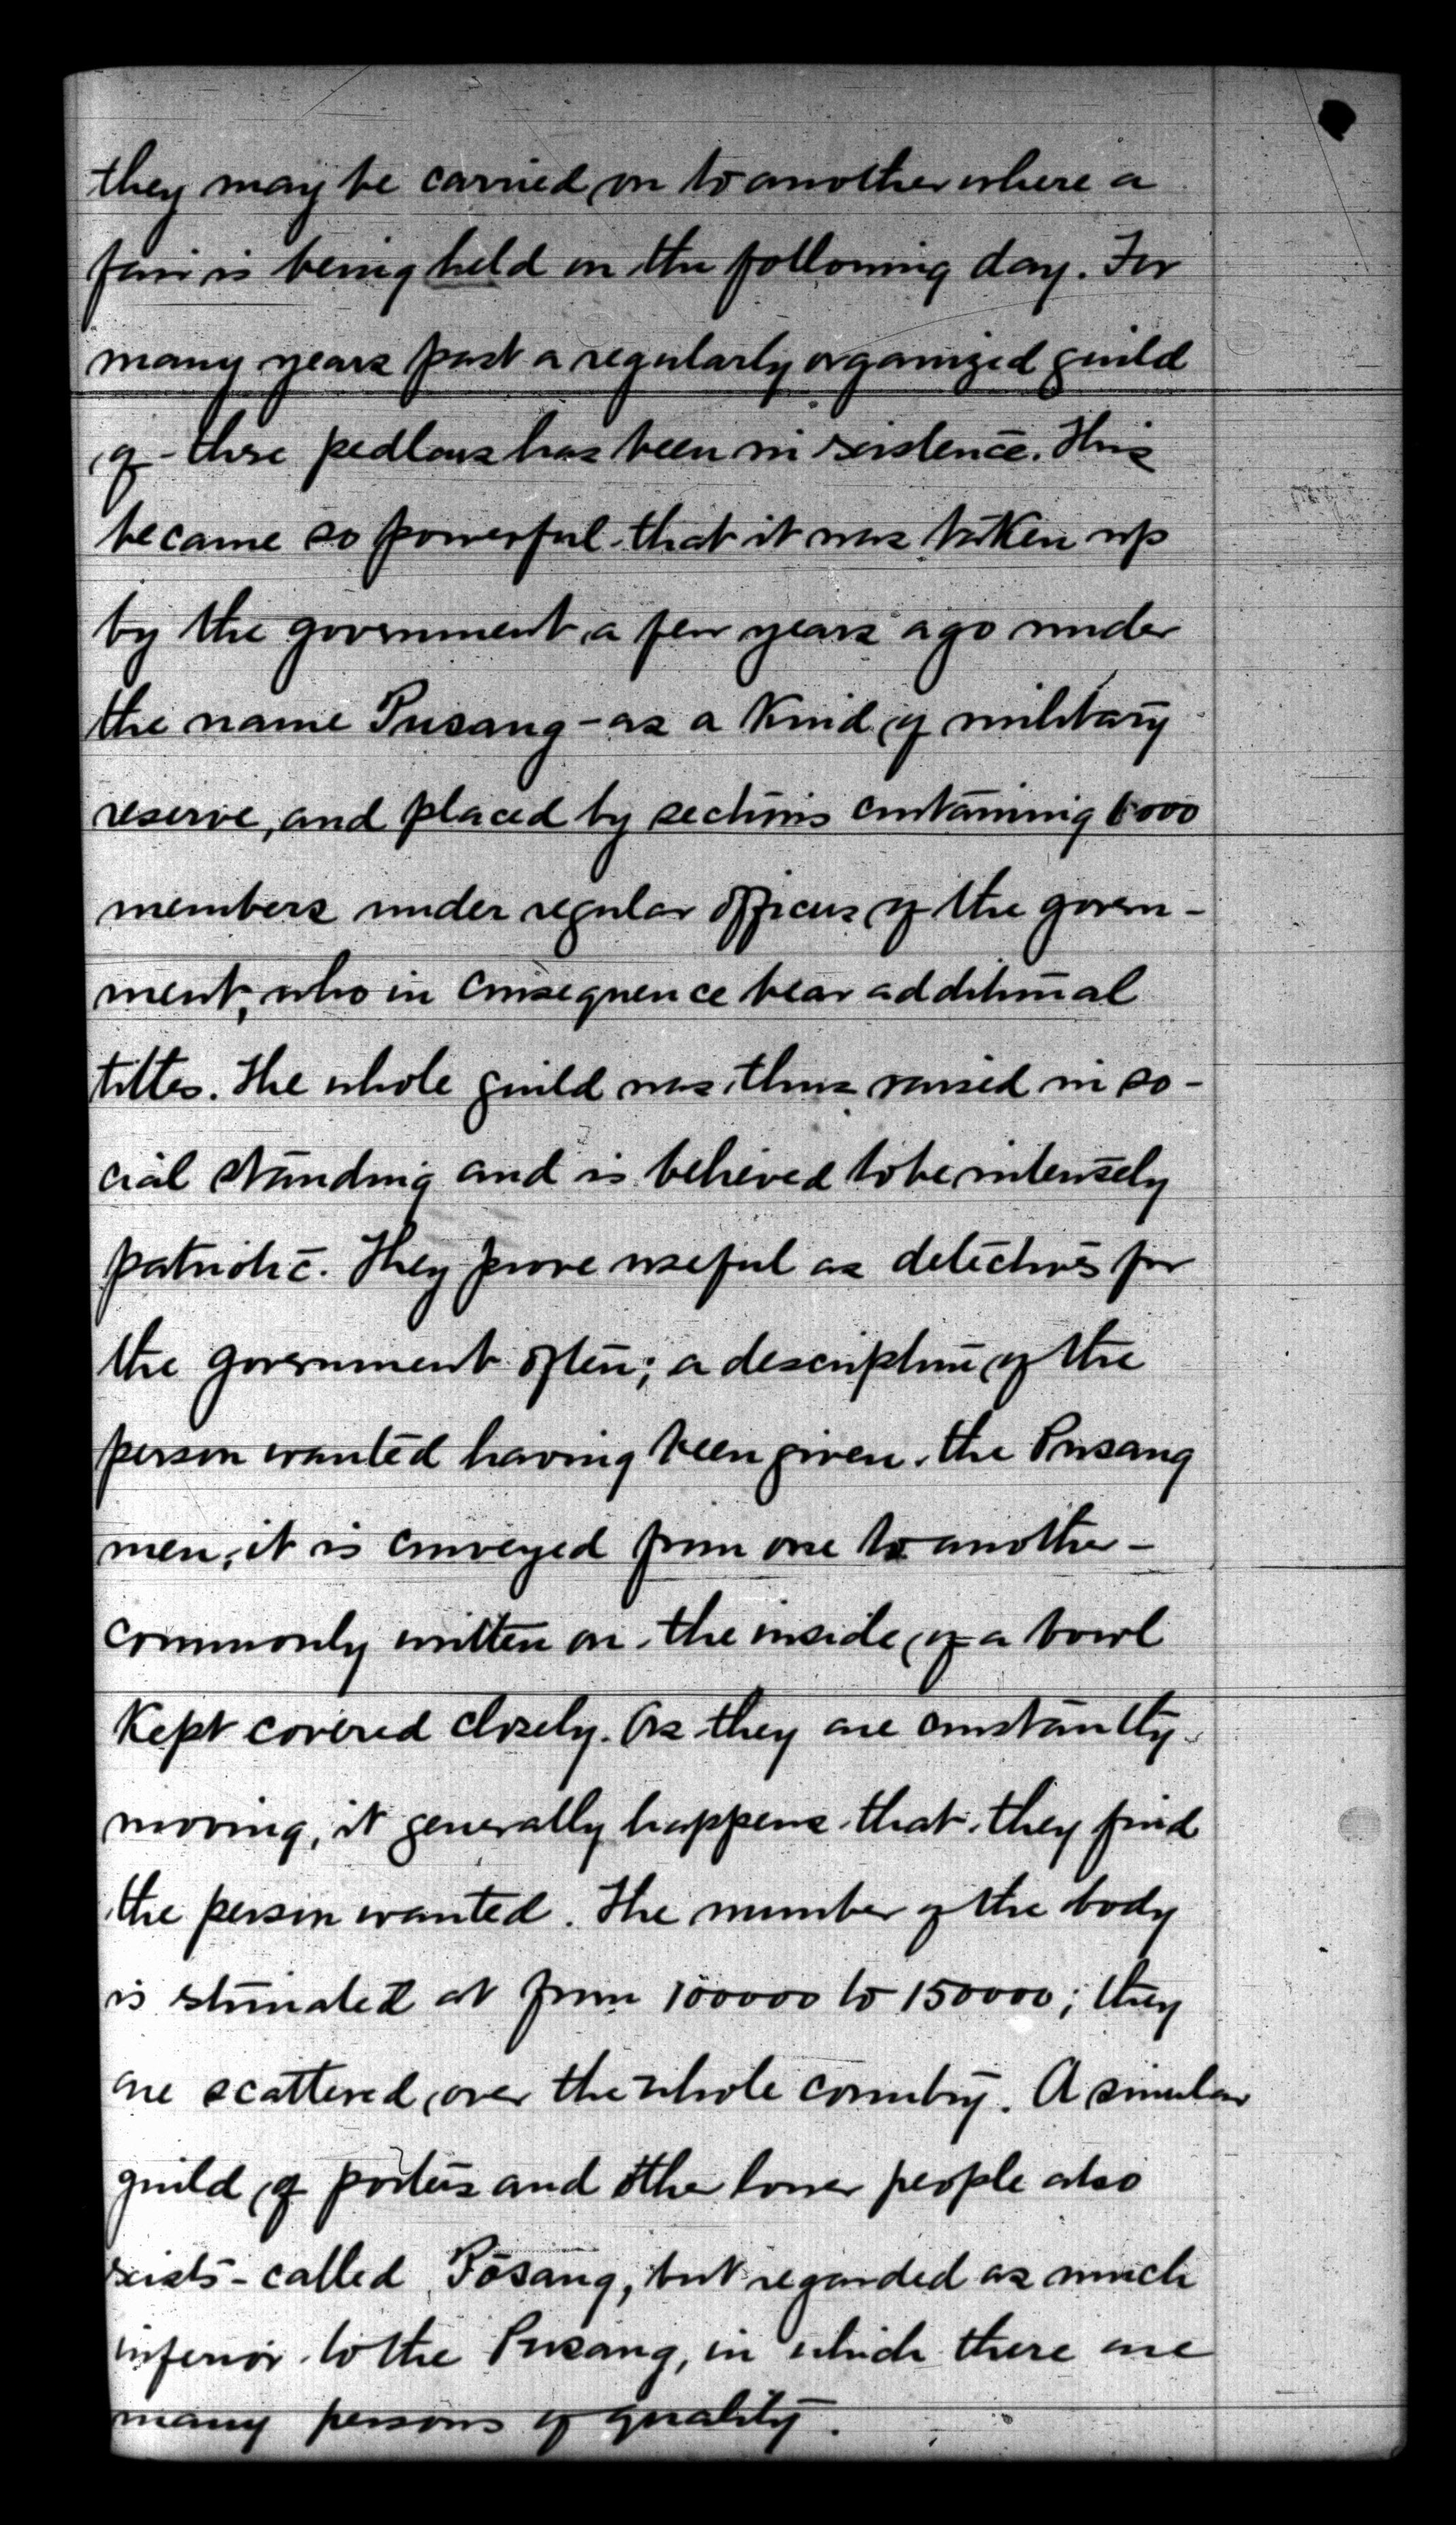 they may be carried on to another where a
fair is being held on the following day. For
many years past a regularly organized guild
of these pedlars has been in existence. This
became so powerful that it was taken up
by the government a few years ago under
the name Pusang - as a kind of military
reserve, and placed by sections containing 1000
members under regular officers of the govern-
ment, who in consequence bear additional
titles. The whole guild was thus raised in so-
cial standing and is believed to be intensely
patriotic. They prove useful as detectives for
the government often; a description of the
person wanted having been given the Pusang
men, it is conveyed from one to another -
commonly written on the inside of a bowl
kept covered closely. As they are constantly
moving, it generally happens that they find
the person wanted. The number of the body
is estimated at from 100000 to 150000; they
are scattered over the whole country. A similar
guild of porters and other lower people also
exists - called Posang, but regarded as much
inferior to the Pusang, in which there are
many persons of quality.